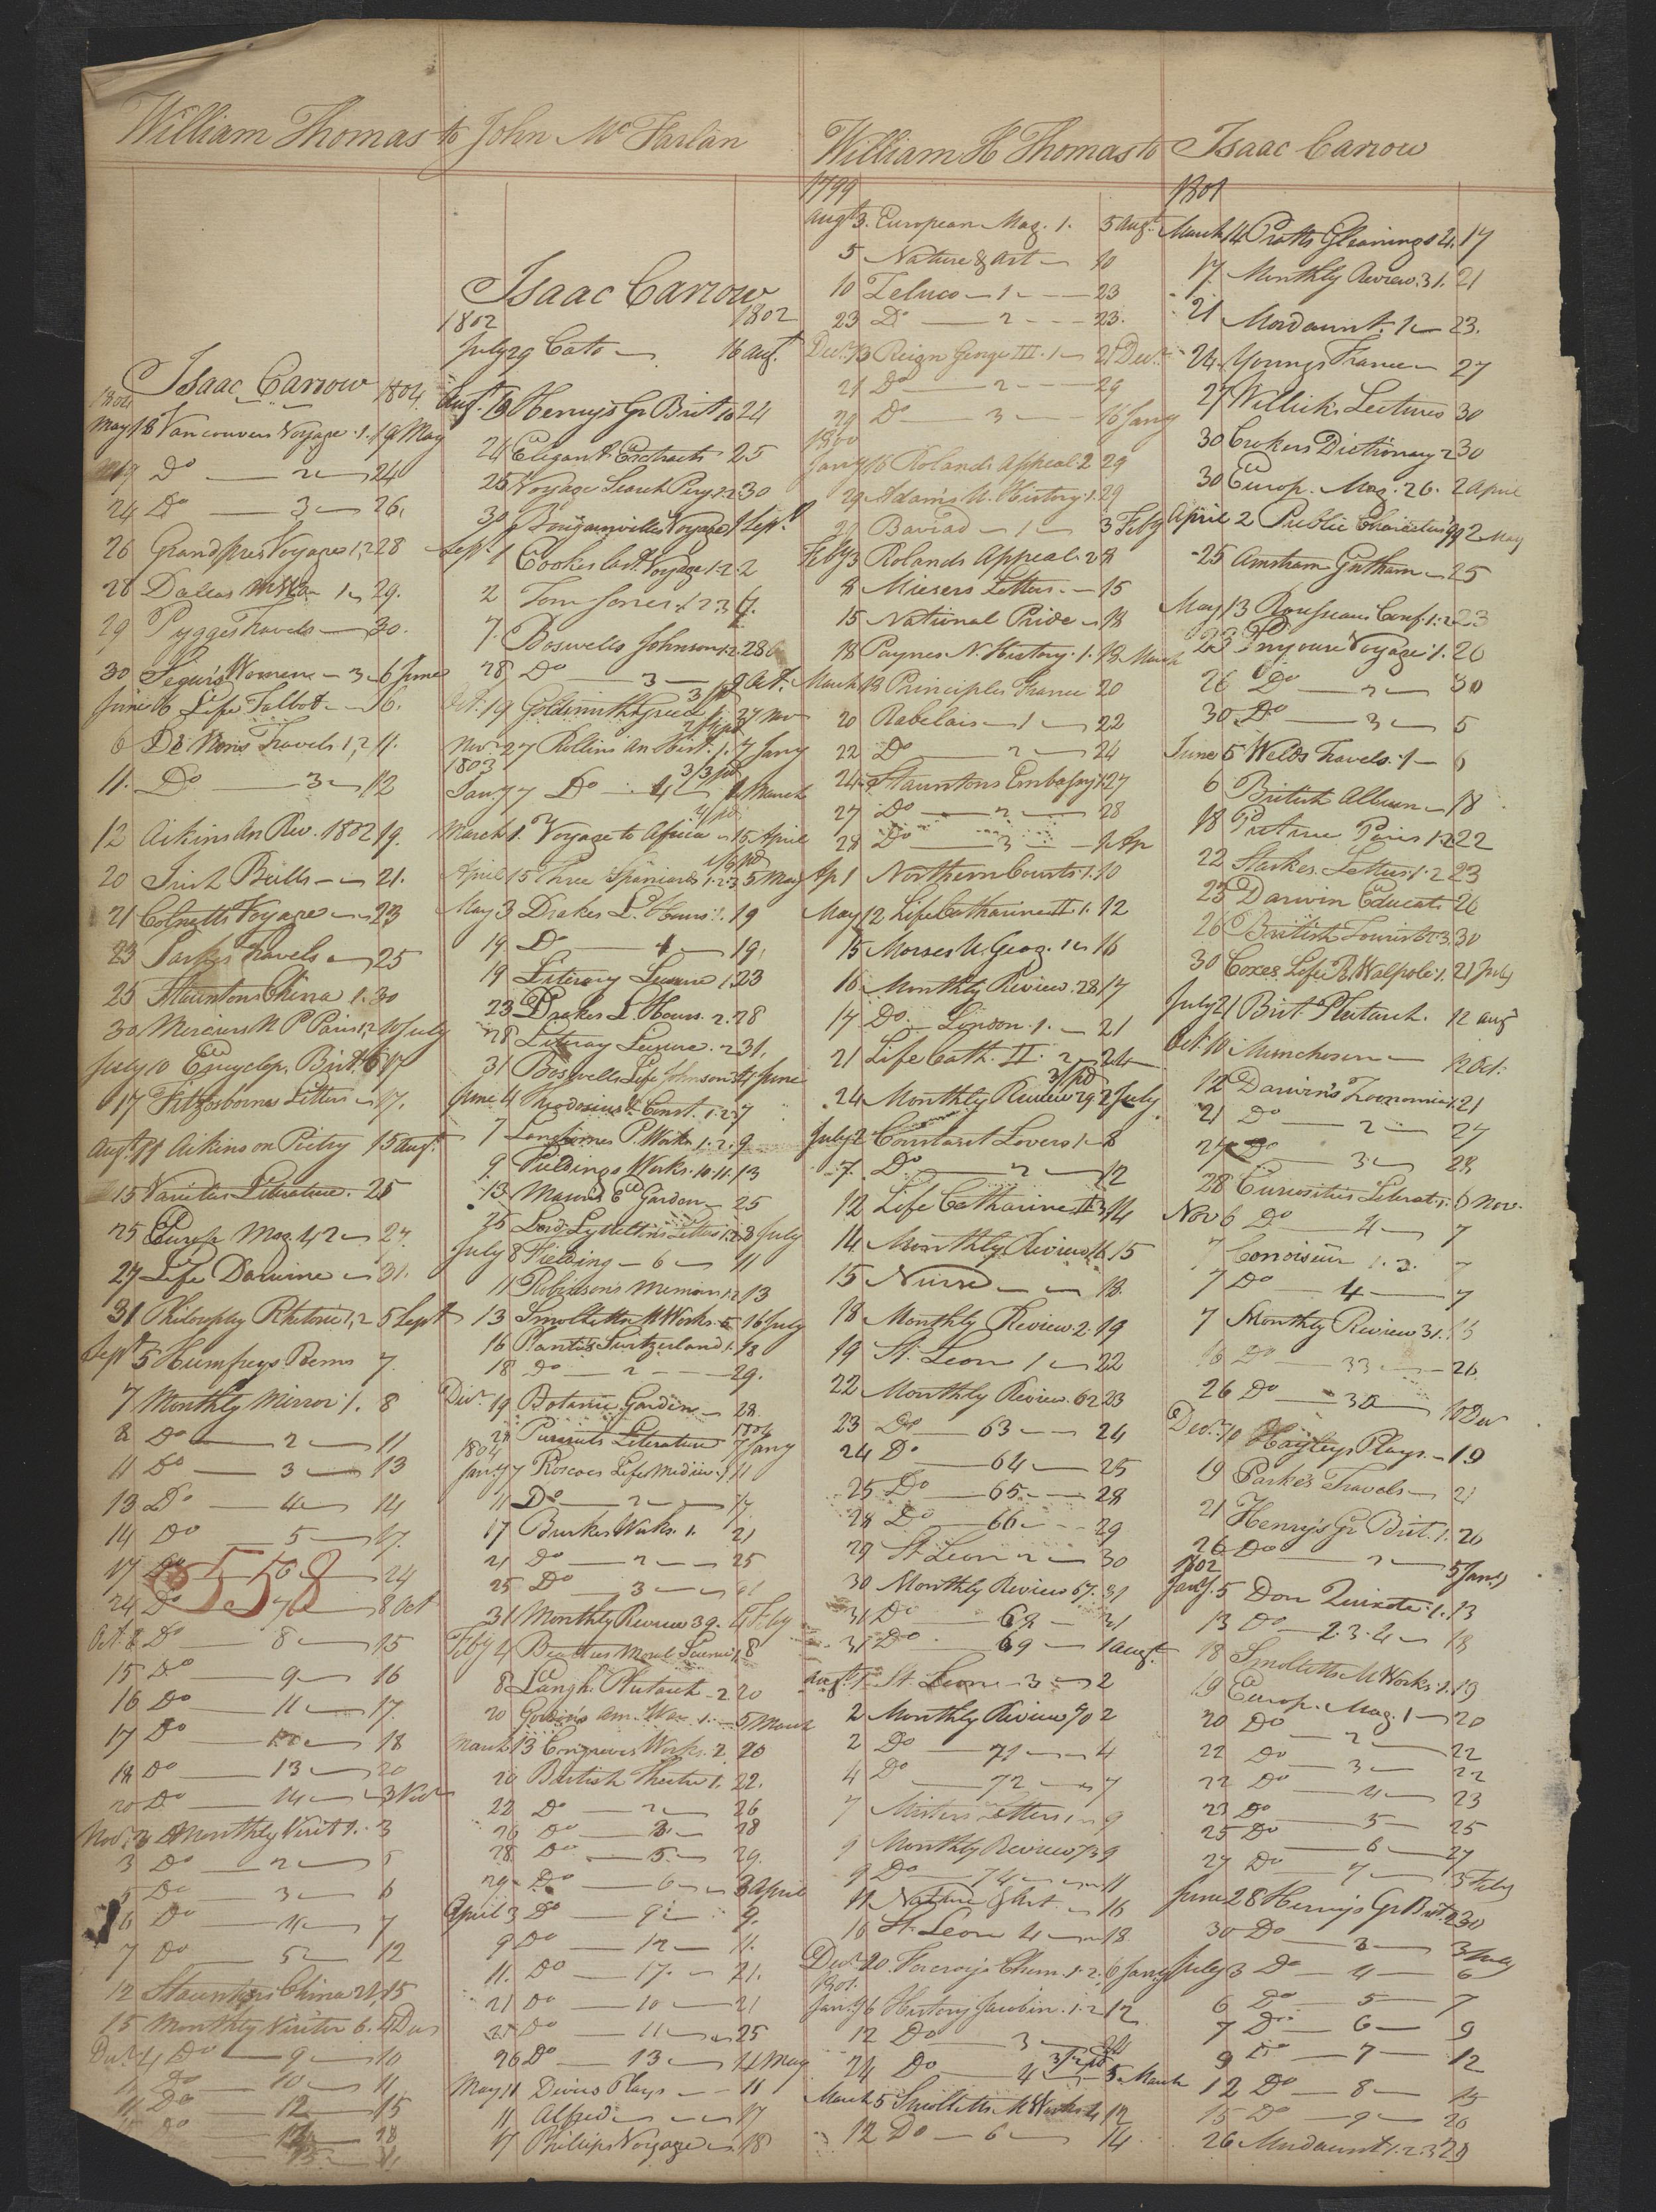 William Thomas to John McFarlan
William H Thomas to Isaac Carrow
Isaac Carrow
1804 1804
May 18 Vancouvers Voyage .1. 19 May
19 Do 2 24
24 Do 3 26.
26 Grandpres Voyages 1,2 28
28 Dallas 1 29.
29 Pygges Travels 30.
30 Segur's Women 3 6 June
June 6 Life Talbot 6.
6 De Nons Travels 1,2 11.
11. Do 3 12
12 Aikins An Rev. 1802 19.
20 Irish Bulls 21.
21 Colnetts Voyage 23
23 Parkes Travels 25
25 Stauntons China 1. 30
30 Merciers N P Paris 1,2 10 July
July 10 Encyclop. Brit. 6 17
17 Fitzosbornes Letters 17.
Augt. 11 Aikins on Poetry 15 Augt.
15 Varieties Literature. 25
25 Europ Mag 42 27.
27 Life Darwine 31.
31 Philosophy Rhetoric 1,2 5 Sept
Sept 5 Humfreys Poems 7.
7 Monthly Mirror 1. 8
8 Do 2 11
11 Do 3 13
13 Do 4 14
14 Do 5 17.
17 Do 6 24
558
24 Do 7 8 Oct
Oct. 8 Do 8 15
15 Do 9 16
16 Do 11 17.
17 Do 18
18 Do 13 20
20 Do 14 3 Nov
Nov. 3 Monthly Visit 1. 3
3 Do 2 5
5 Do 3 6
6 Do 4 7
7 Do 5 12
12 Stauntons China 2 15
15 Monthly Visitor 6. 4 Dec
Decr. 4 Do 9 10
Do 10 11
11 Do 12 15
Do 18
Isaac Carrow
1802 1802
July 29 Cato 16 Augt.
Augt. 19 Henrys Gr Brit 10 24
24 Elegant Extracts 25
25 Voyage Search Pery. 1.2 30
30 Bougainvilles Voyage 1 Sept.
Sept. 1 Cookes last Voyage 1.2. 2
2 Tom Jones 1 2 3 7.
7. Boswells Johnson 1.2. 28
28 Do 3 9 Oct.
3/pd
Oct. 19 Goldsmiths Greece 1. 27 Nov
Novr 27 Rollins An Hist. 1. 7 Jany
1803
3/3 pd
Jany 7 Do 4 1 March
March 1. Voyage to Africa 15 April
1/6 pd
April 15 Three Spaniards 1.2.3 5 May
May 3 Drakes L. Hours 1. 19
19 Do 4 19.
19 Literary Leisure 1. 23
23 Drakes L. Hours. 2. 28
28 Literary Leisure. 2 31.
31 Boswells Life Johnson 4 June
June 4 Theodosius & Const. 1.2 7
7 Langhornes P. Works 1. 2. 9.
9. Fieldings Works. 10.11. 13
13. Mason's E Garden 25
25 Lord Lyttelton's Letters 1.2. 8 July
July 8 Fielding 6 11
11 Robinson's Memoirs 1.2 13
13 Smolletts M Works. 5 16 July
16 Planta's Switzerland 1. 18
18 Do 2 29.
Decr. 19 Botanic Garden 28
1804
28 Pursuits Literature 7 Jany
1804
Jany 7 Roscoes Life Medici. 1 11
11 Do 2 17
17 Burkes Works. 1. 21
21 Do 2 25
25 Do 3 31
31 Monthly Review 39. 4 Feby
Feby 4 Beatties Moral Science 1. 8
8 Langh. Plutarch 2 20
20 Gordons Am. War 1. 5 March
March 13 Congreves Works. 2. 20
20 British Theatre 1. 22.
22 Do 2 26
26 Do 3 28
28 Do 5 29.
29 Do 6 3 April
April 3 Do 9 9.
9 Do 12 11.
11. Do 17. 21.
21 Do 10 21
25 Do 11 25
26 Do 13 11 May
May 11 Divers Plays 11
11 Alfred 17
17 Philips Voyage 18
1799
Augt 3. European Mag. 1. 5 Augt.
5 Nature & Art 10
10 Zeluco 1 23
23 Do 2 23.
Decr. 13 Reign George III. 1 21 Decr.
21 Do 2 29
29 Do 3 16 Jany
1800
Jany 16 Rolands Appeal 2 29
29 Adams N. History. 1. 29
29 Baviad 1 3 Feby
Feby 3 Rolands Appeal 2 8
8 Miesers Letters. 15
15 National Pride 18
18 Paynes N. History. 1. 13 March
March 13 Principles France 20
20 Rabelais 1 22
22 Do 2 24
24 Stauntons Embassy 1 27
27 Do 2 28
28 Do 3 1 Ap
Ap 1 Northern Courts 1. 10
May 12 Life Catharine II 1. 12
15 Morses U. Geog. 1 16
16 Monthly Review. 28 17
17 Do London. 1. 21
21 Life Cath. II. 2 24
3/pd
24 Monthly Review 29 2 July
July 2 Constant Lovers 1 8
7. Do 2 12
12 Life Catharine II 3 14
14 Monthly Review 16. 15
15 Nurse 18.
18 Monthly Review. 2. 19
19 St. Leon 1 22
22 Monthly Review. 62 23
23 Do 63 24
24 Do 64 25
25 Do 65 28
28 Do 66 29
29 St Leon 2 30
30 Monthly Review 67. 31
31 Do 68 31
31 Do 69 1 Augt.
Augt 1 St Leon 3 2
2 Monthly Review 70 2
2 Do 71 4
4 Do 72 7
7 Letters 1 9
9 Monthly Review 73 9
9 Do 74 11
11 Nature & Art. 16
16 St. Leon 4 18
Decr 20 Fourcroys Chem. 1. 2. 6 Jany
1801.
Jany 6 History Jacobin. 1.2 12
12 Do 3 24
3/2 pd
24 Do 4 5 March
March 5 Smolletts M Works 4 12
12 Do 6 14
1801
March 14 Pratts Gleanings 2. 17
17. Monthly Review. 31. 21
21 Mordaunt. 1 23.
24 Youngs France 27
27 Willichs Lectures 30
30 Crokers Dictionary 2 30
30 Europ. Mag. 26. 2 April
April 2 Public Characters 99 2 May
25 Amsham Gutham 25
May 13 Rousseaus Conf. 1.2 23
23 Voyage. 1. 26
26 Do 2 30
30. Do 3 5
June 5 Welds Travels. 1 6
6 British Album 18
18 Picture Paris 1.2 22
22 Starkes Letters. 1. 2 23
23 Darwin Educat. 26
26 British Tourist 2 3. 30
30 Coxes Life R. Walpole. 1. 21 July
July 21 Brit. Plutarch. 12 Aug
Oct. 10 Munchosen 12 Oct.
12 Darwin's Zoonomia 1. 21
21 Do 2 27
27 Do 3. 28
28 Curiosities Literat. 1. 6 Nov.
Nov 6 Do 4 7
7 Conoisieur 1. 3. 7
7 Do 4 7
7 Monthly Review 31. 16
16 Do 33 26
26 Do 10 Dec
Decr. 10 Hayleys Plays. 19
19 Parke's Travels 21
21 Henry's Gr Brit. 1. 26
26 Do 2 5 Jany
1802
Jany. 5 Don Quixote. 1. 13
13 Do 2. 3. 4 18
18 Smolletts M Works. 1. 19
19 Europ. Mag. 1 20
20 Do 2 22
22 Do 3 22
22 Do 4 23
23 Do 5 25
25 Do 6 27
27 Do 7 5 Feby
June 28 Henry's Gr Brit. 2 30
30 Do 3 3 July
July 3 Do 4 6
6 Do 5 7
7 Do 6 9
9 Do 7 12
12 Do 8 15
15 Do 9 26
26 Mordaunt 1. 2. 3 29